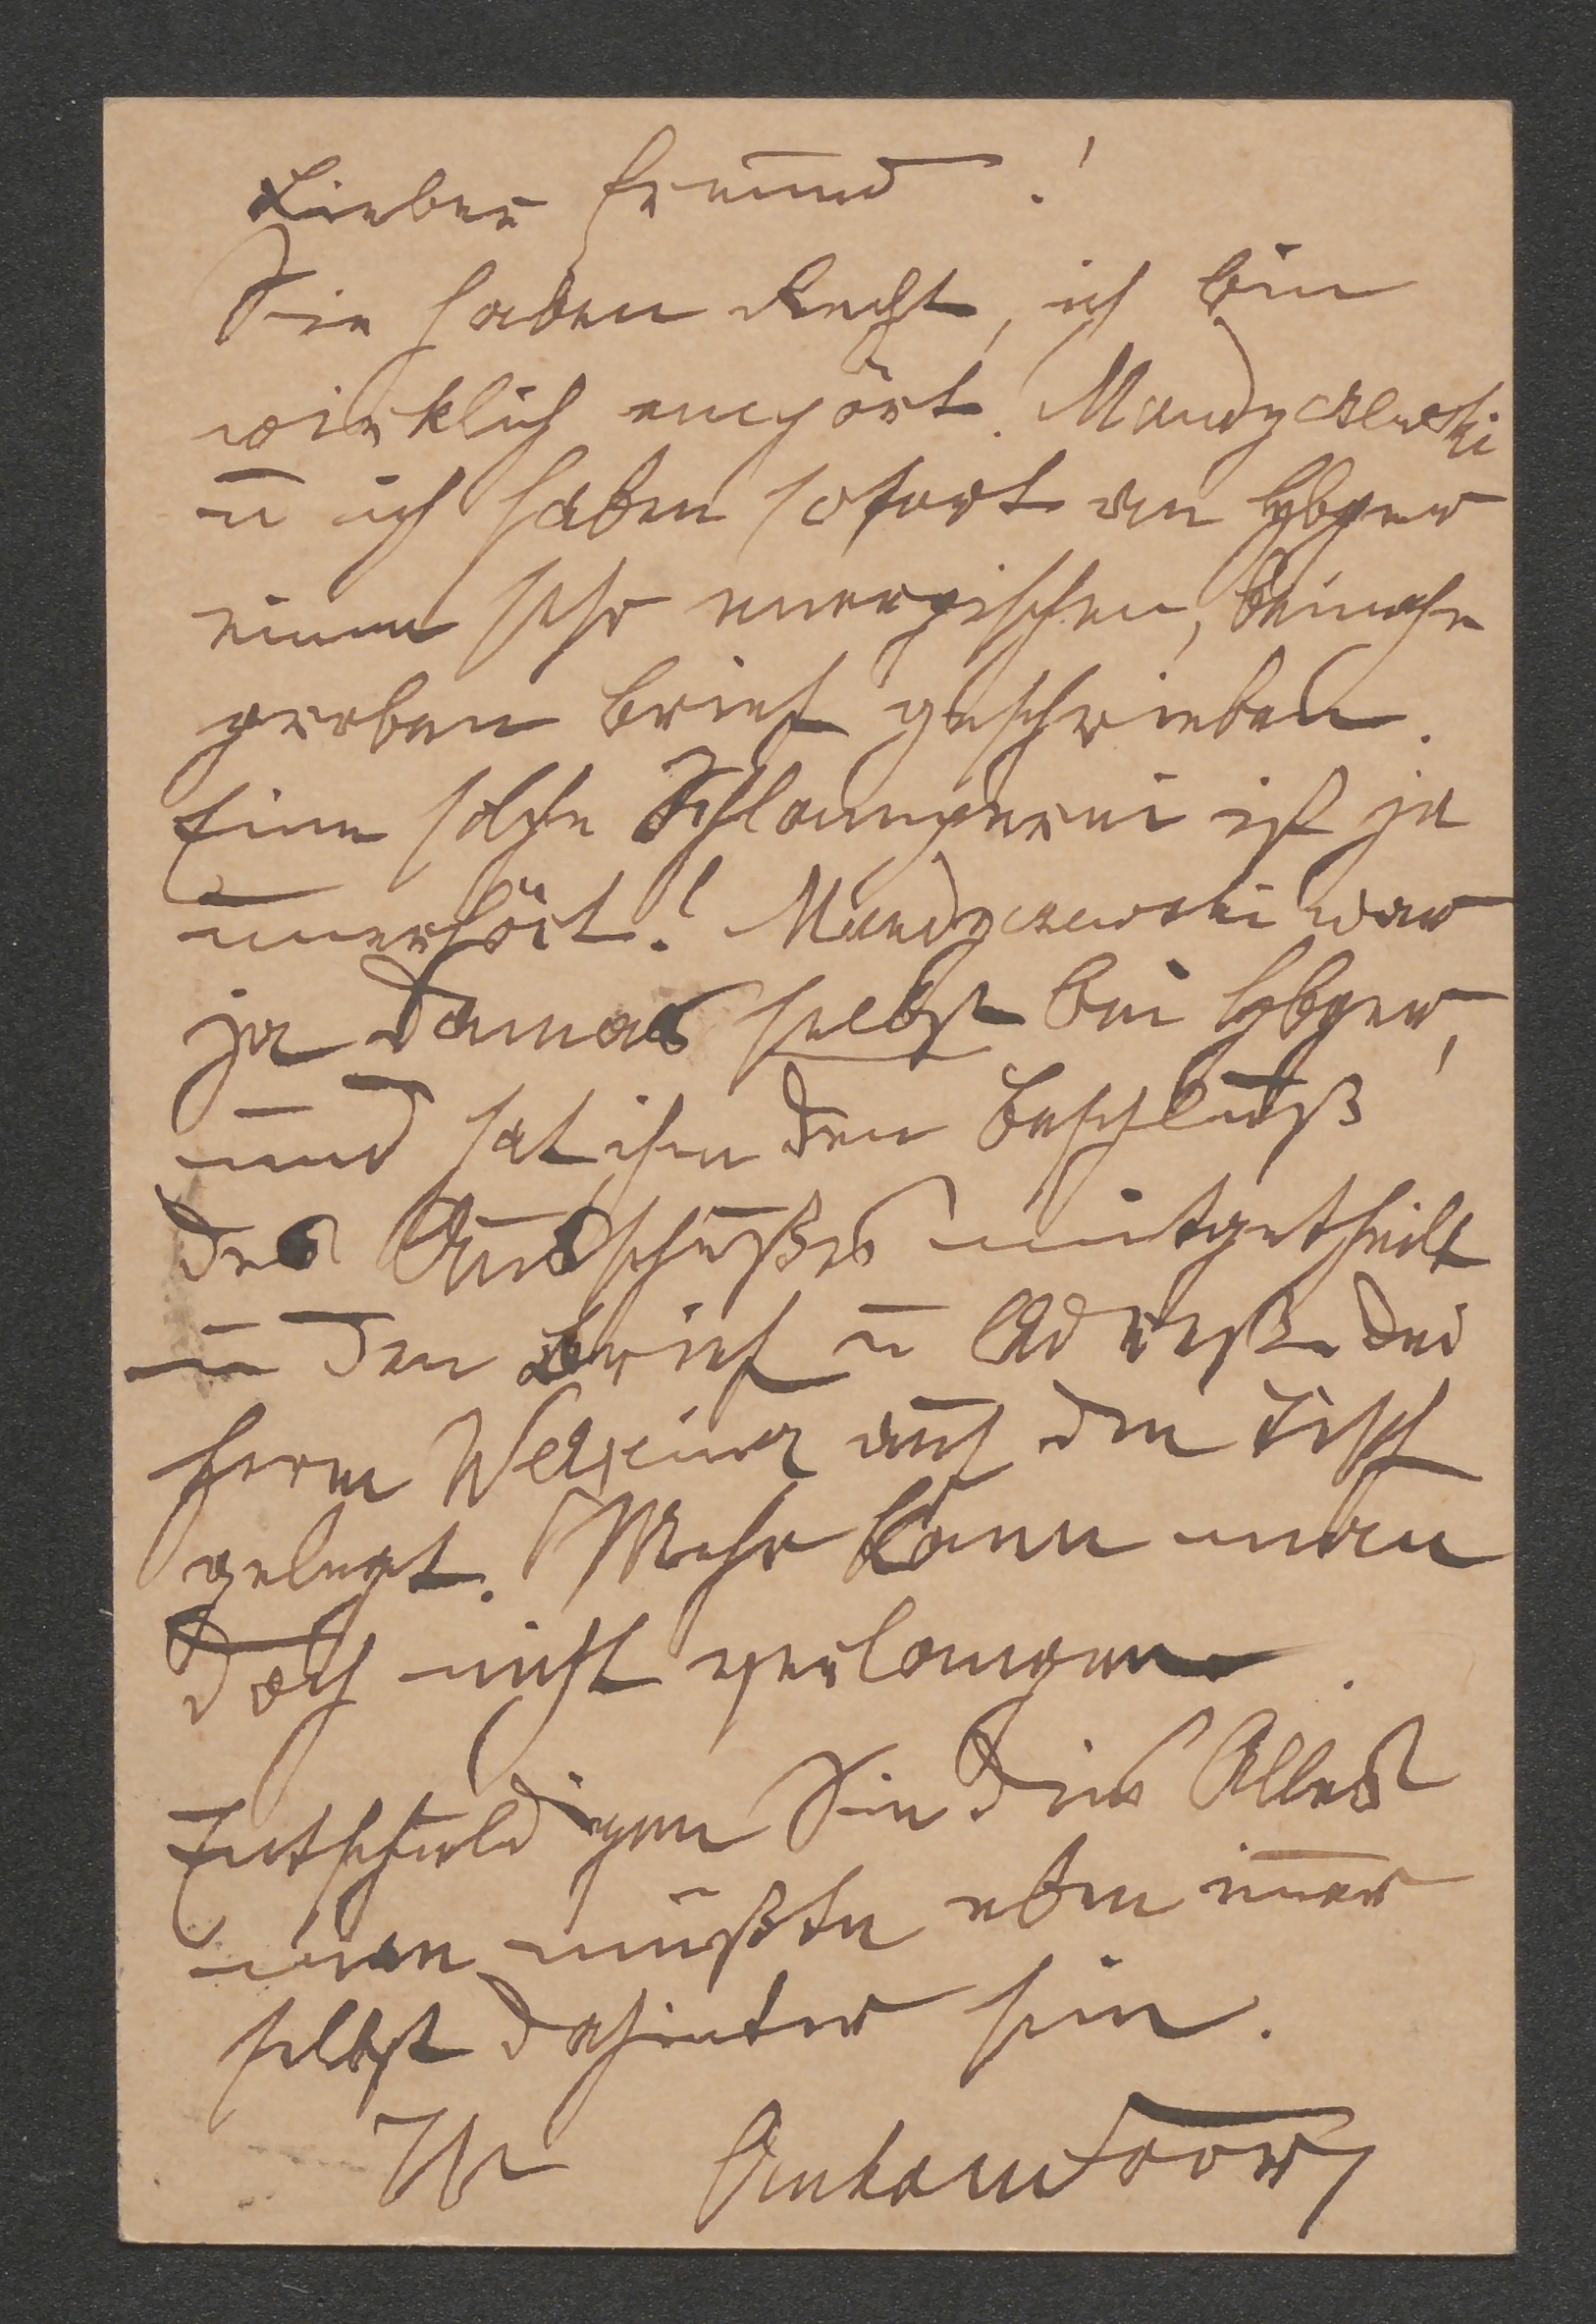 Lieber Freund!
Sie haben Recht, ich bin
wirklich empört. Mandyczewski
u ich haben sofort an
einen sehr energischen, beinahe
groben Brief geschrieben.
Eine solche Schlamperei ist ja
unerhört! Mandyczewski war
ja damals selbst bei
und hat ihm den Beschluß
des Ausschußes mitgetheilt
u den Brief u Adresse des
Herrn auf den Tisch
gelegt. Mehr kann man
doch nicht verlangen.
Entschuldigen Sie dies Alles
man müßte eben im̅er
selbst dahinter sein.
Ihr AntonDoor